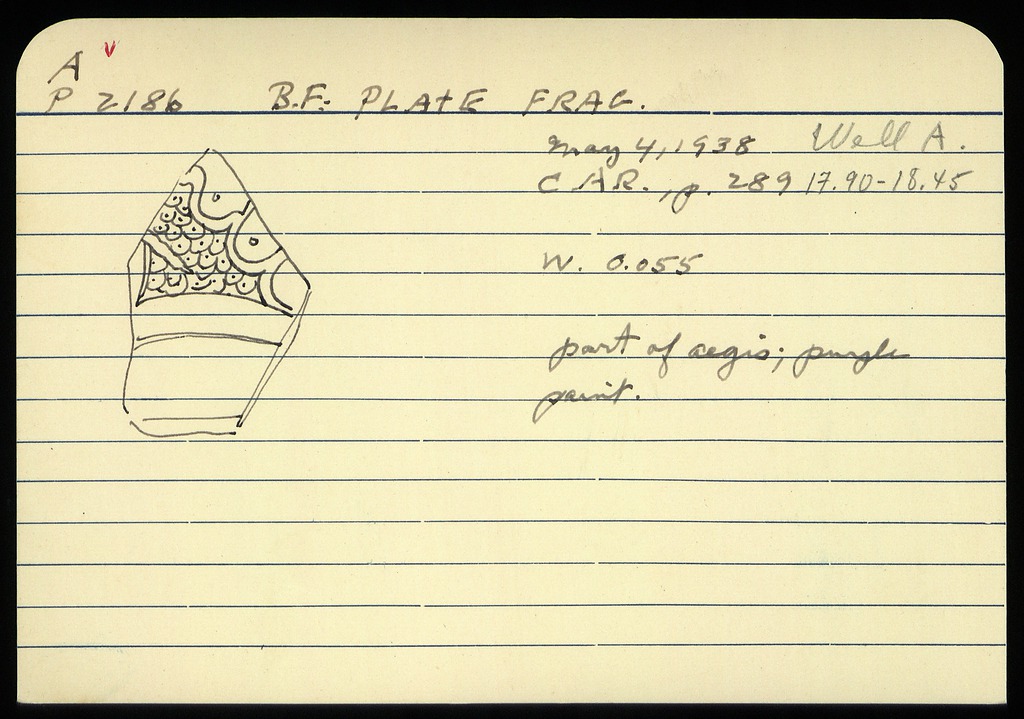 A v
P 2186 B.F. PLATE FRAG.
May 4, 1938 Well A.
C AR., p. 289 17.90-18.45
W. 0.055
part of aegis; purple
paint.